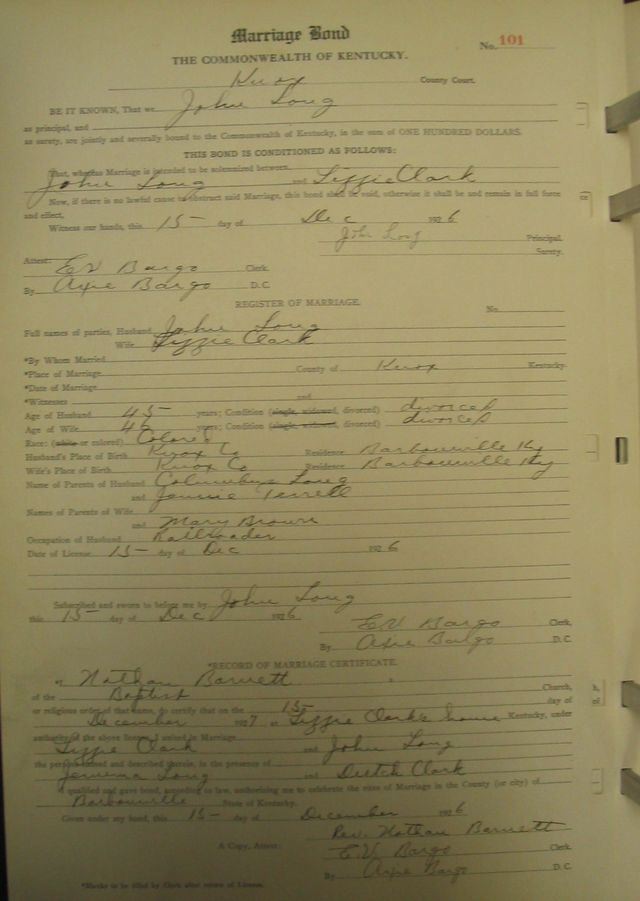 Marriage Bond
No. 101
THE COMMONWEALTH OF KENTUCKY.
Knox County Court.
BE IT KNOWN, That we John Long
as principal, and
as surety, are jointly and severally bound to the Commonwealth of Kentucky, in the sum of ONE HUNDRED DOLLARS.
THIS BOND IS CONDITIONED AS FOLLOWS:
That, whereas Marriage is intended to be solemnized between
John Long and Lizzie Clark
Now, if there is no lawful cause to obstruct said Marriage, this bond shall be void, otherwise it shall be and remain in full force
and effect.
Witness our hands, this 15 day of Dec 1926
John Long Principal.
Surety.
Attest:
EV Bargo Clerk.
By Axie Bargo D.C.
REGISTER OF MARRIAGE.
No.
Full names of parties, Husband John Long
Wife Lizzie Clark
*By Whom Married
*Place of Marriage County of Knox Kentucky
*Date of Marriage
*Witnesses and
Age of Husband 45 years; Condition (single, widowed, divorced) divorced
Age of Wife 46 years; Condition (single, widowed, divorced) divorced
Race: (white or colored) Colored
Husband's Place of Birth Knox Co Residence Barbourville Ky
Wife's Place of Birth Knox Co Residence Barbourville Ky
Name of Parents of Husband Columbus Long
and Jennie Terrell
Names of Parents of Wife
and Mary Brown
Occupation of Husband Railroader
Date of License 15 day of Dec 1926
Subscribed and sworn to before me by John Long
this 15 day of Dec 1926
EV Bargo Clerk.
By Axie Bargo D.C.
*RECORD OF MARRIAGE CERTIFICATE.
I, Nathan Barnett
of the Baptist Church,
or religious order of that name, do certify that on the 15 day of
December 1927 at Lizzie Clark's home Kentucky, under
authority of the above license, I united in Marriage
Lizzie Clark and John Long
the persons named and described therein, in the presence of
Jemima Long and Dutch Clark
I qualified and gave bond, according to law, authorizing me to celebrate the rites of Marriage in the County (or city) of
Barbourville State of Kentucky.
Given under my hand, this 15 day of December 1926
Rev. Nathan Barnett
A Copy, Attest: E.V. Bargo Clerk.
By Axie Bargo D.C.
*Blanks to be filled by Clerk after return of License.